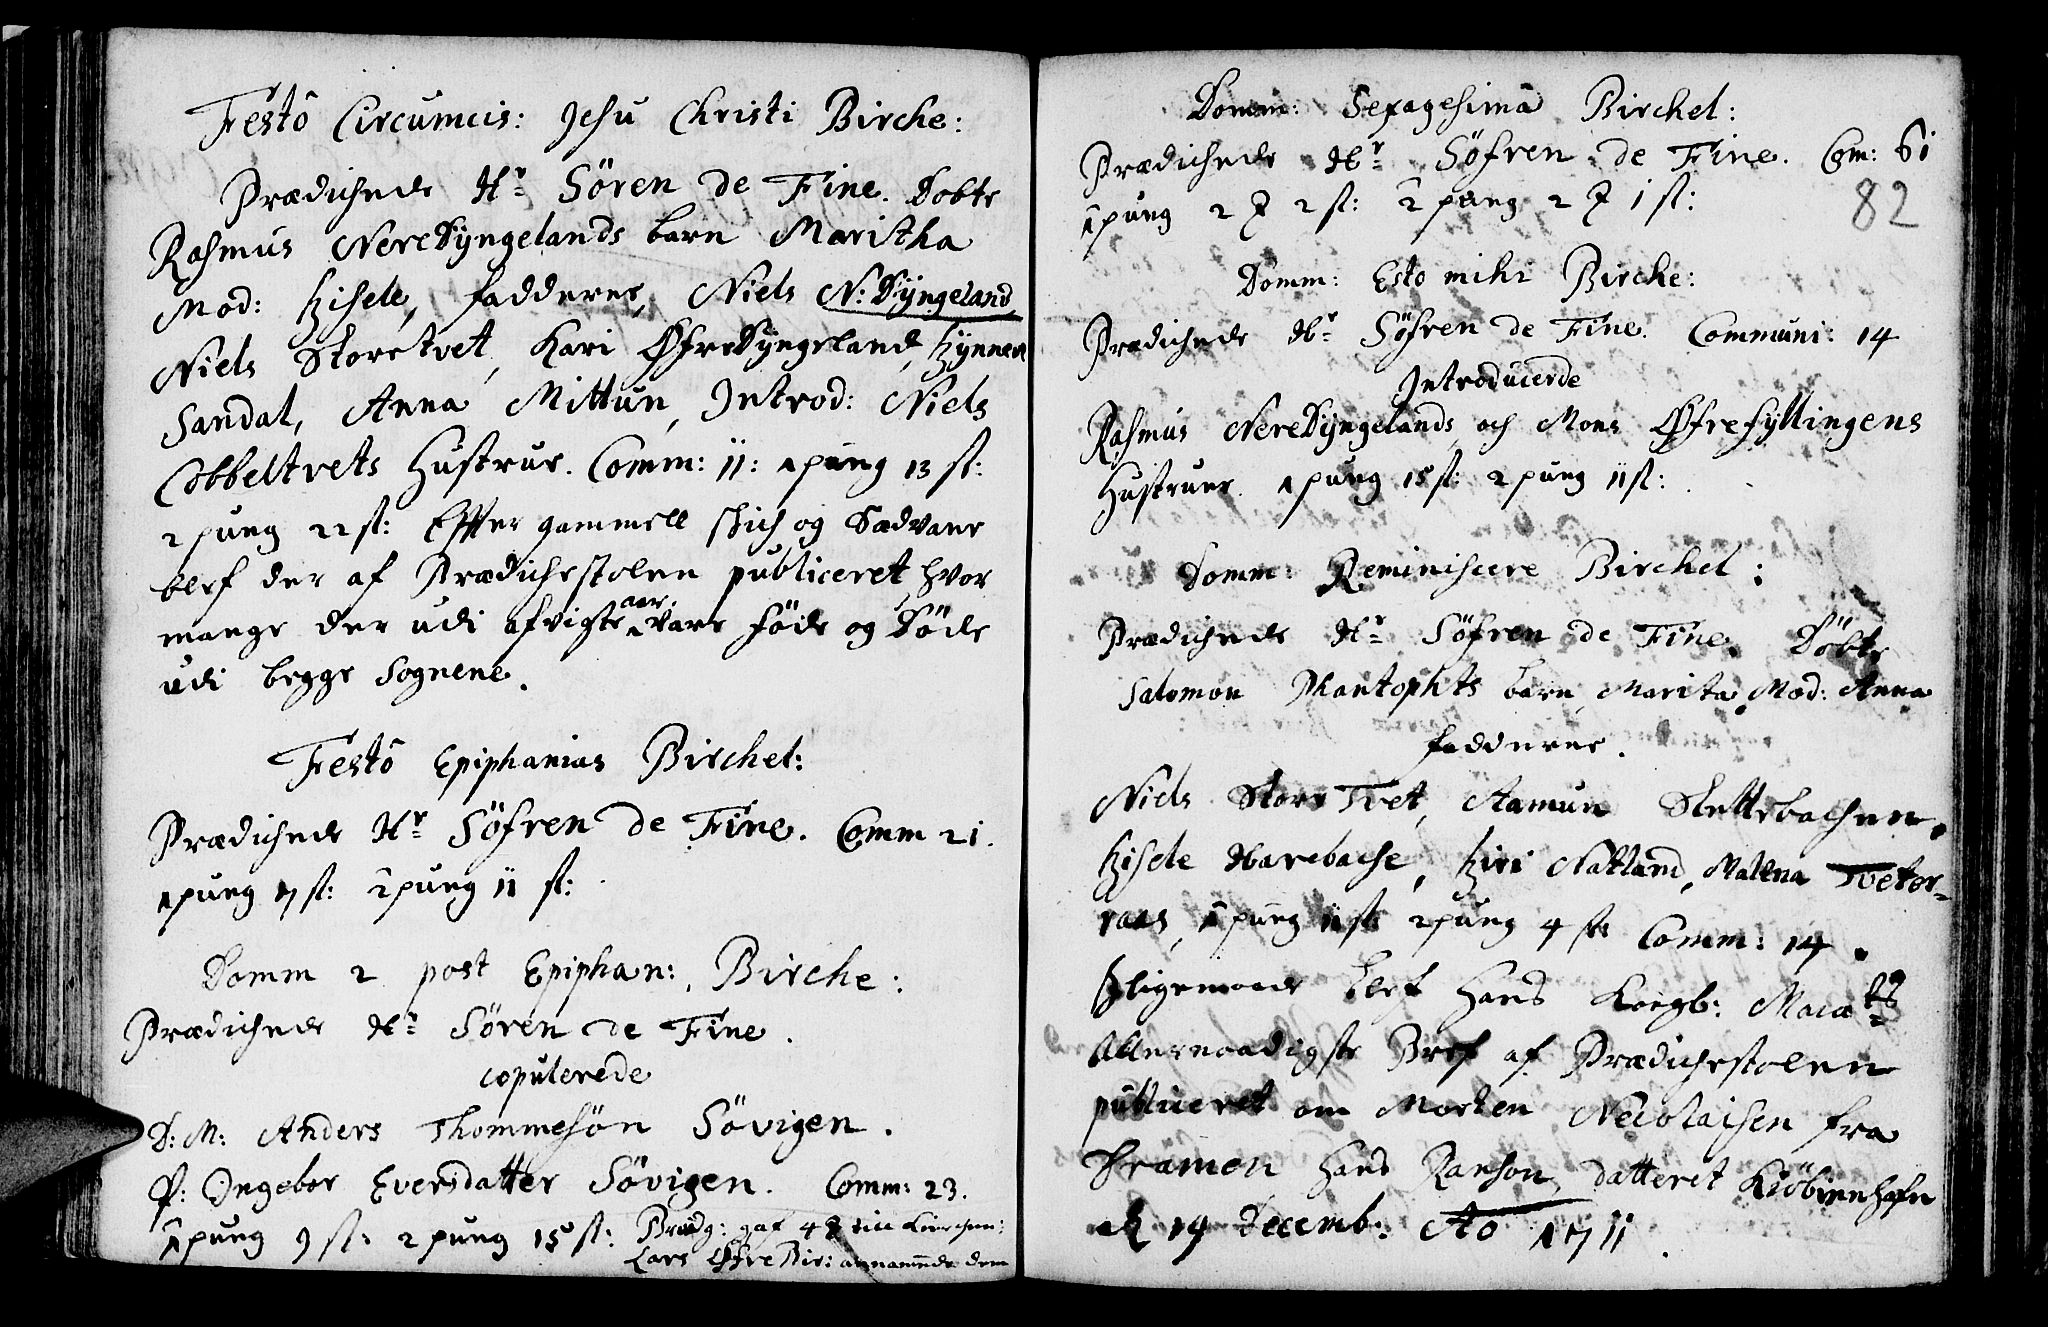 Festô Circumcis: Jesu Christi Birche:
Prædichede Hr Sören de Fine. Döbte
Rasmus NereDyngelands barn Maritha
Mod: Gisele, fadderne, Niels N: Dyngeland,
Niels Storetvet, Kari ØfreDyngeland, Gynnere
Sandal, Anna Mittun, Introd: Niels
Cobbeltvets Hustrue. Comm: 11: 1 pung 13 st:
2 pung 22 st: Effter gammell skich og Sædvane
blef der af Prædichestolen publiceret, hvor
mange der udi afvigte aar vare föde og Döde
udi begge Sognene.
Festô Epiphanias Birchel:
Prædichede Hr Söfren de Fine. Comm 21.
1 pung 7 st: 2 pung 11 st:
Domm 2 post Epiphan: Birche:
Prædichede Hr Sören de Fine.
copulerede
D: M: Anders Thommesön Sövigen.
P: Ingebor Eversdatter Sövigen. Comm: 23.
1 pung 9 st: 2 pung 15 st: Brudg: gaf 4 till Kirchen:
Lars ØfreBir: annammede dem
Domm: Sexagesimâ Birchel:
Prædichede Hr Söfren de Fine. Com: 61
82
1 pung 2 2 st: 2 pung 2 1 st:
Domm: Esto mihi Birche:
Prædichede Hr Söfren de Fine. Communi: 14
Introducerde
Rasmus NereDyngelands, och Mons Øfrefyllingens
Hustruer. 1 pung 15 st: 2 pung 11 st:
Domm: Reminiscere Birchel:
Prædichede Hr Söfren de Fine. Döbte
Salomon Phantophts barn, Marita, Mod: Anna
fadderne.
Niels StoreTvet, Aamun Slettebachen,
Gisele Harebache, Giri Natland, Malena Tveter-
raas, 1 pung 11 st 2 pung 4 st Comm: 14.
Sligemaade blef Hans Kongb: Maiets
Allernaadigste Bref af Prædichestolen
publiceret om Morten Necolaisen fra
Dramen hans Ranson, datterit Kiöbinhafn
d 19 Decemb: Ao 1711.